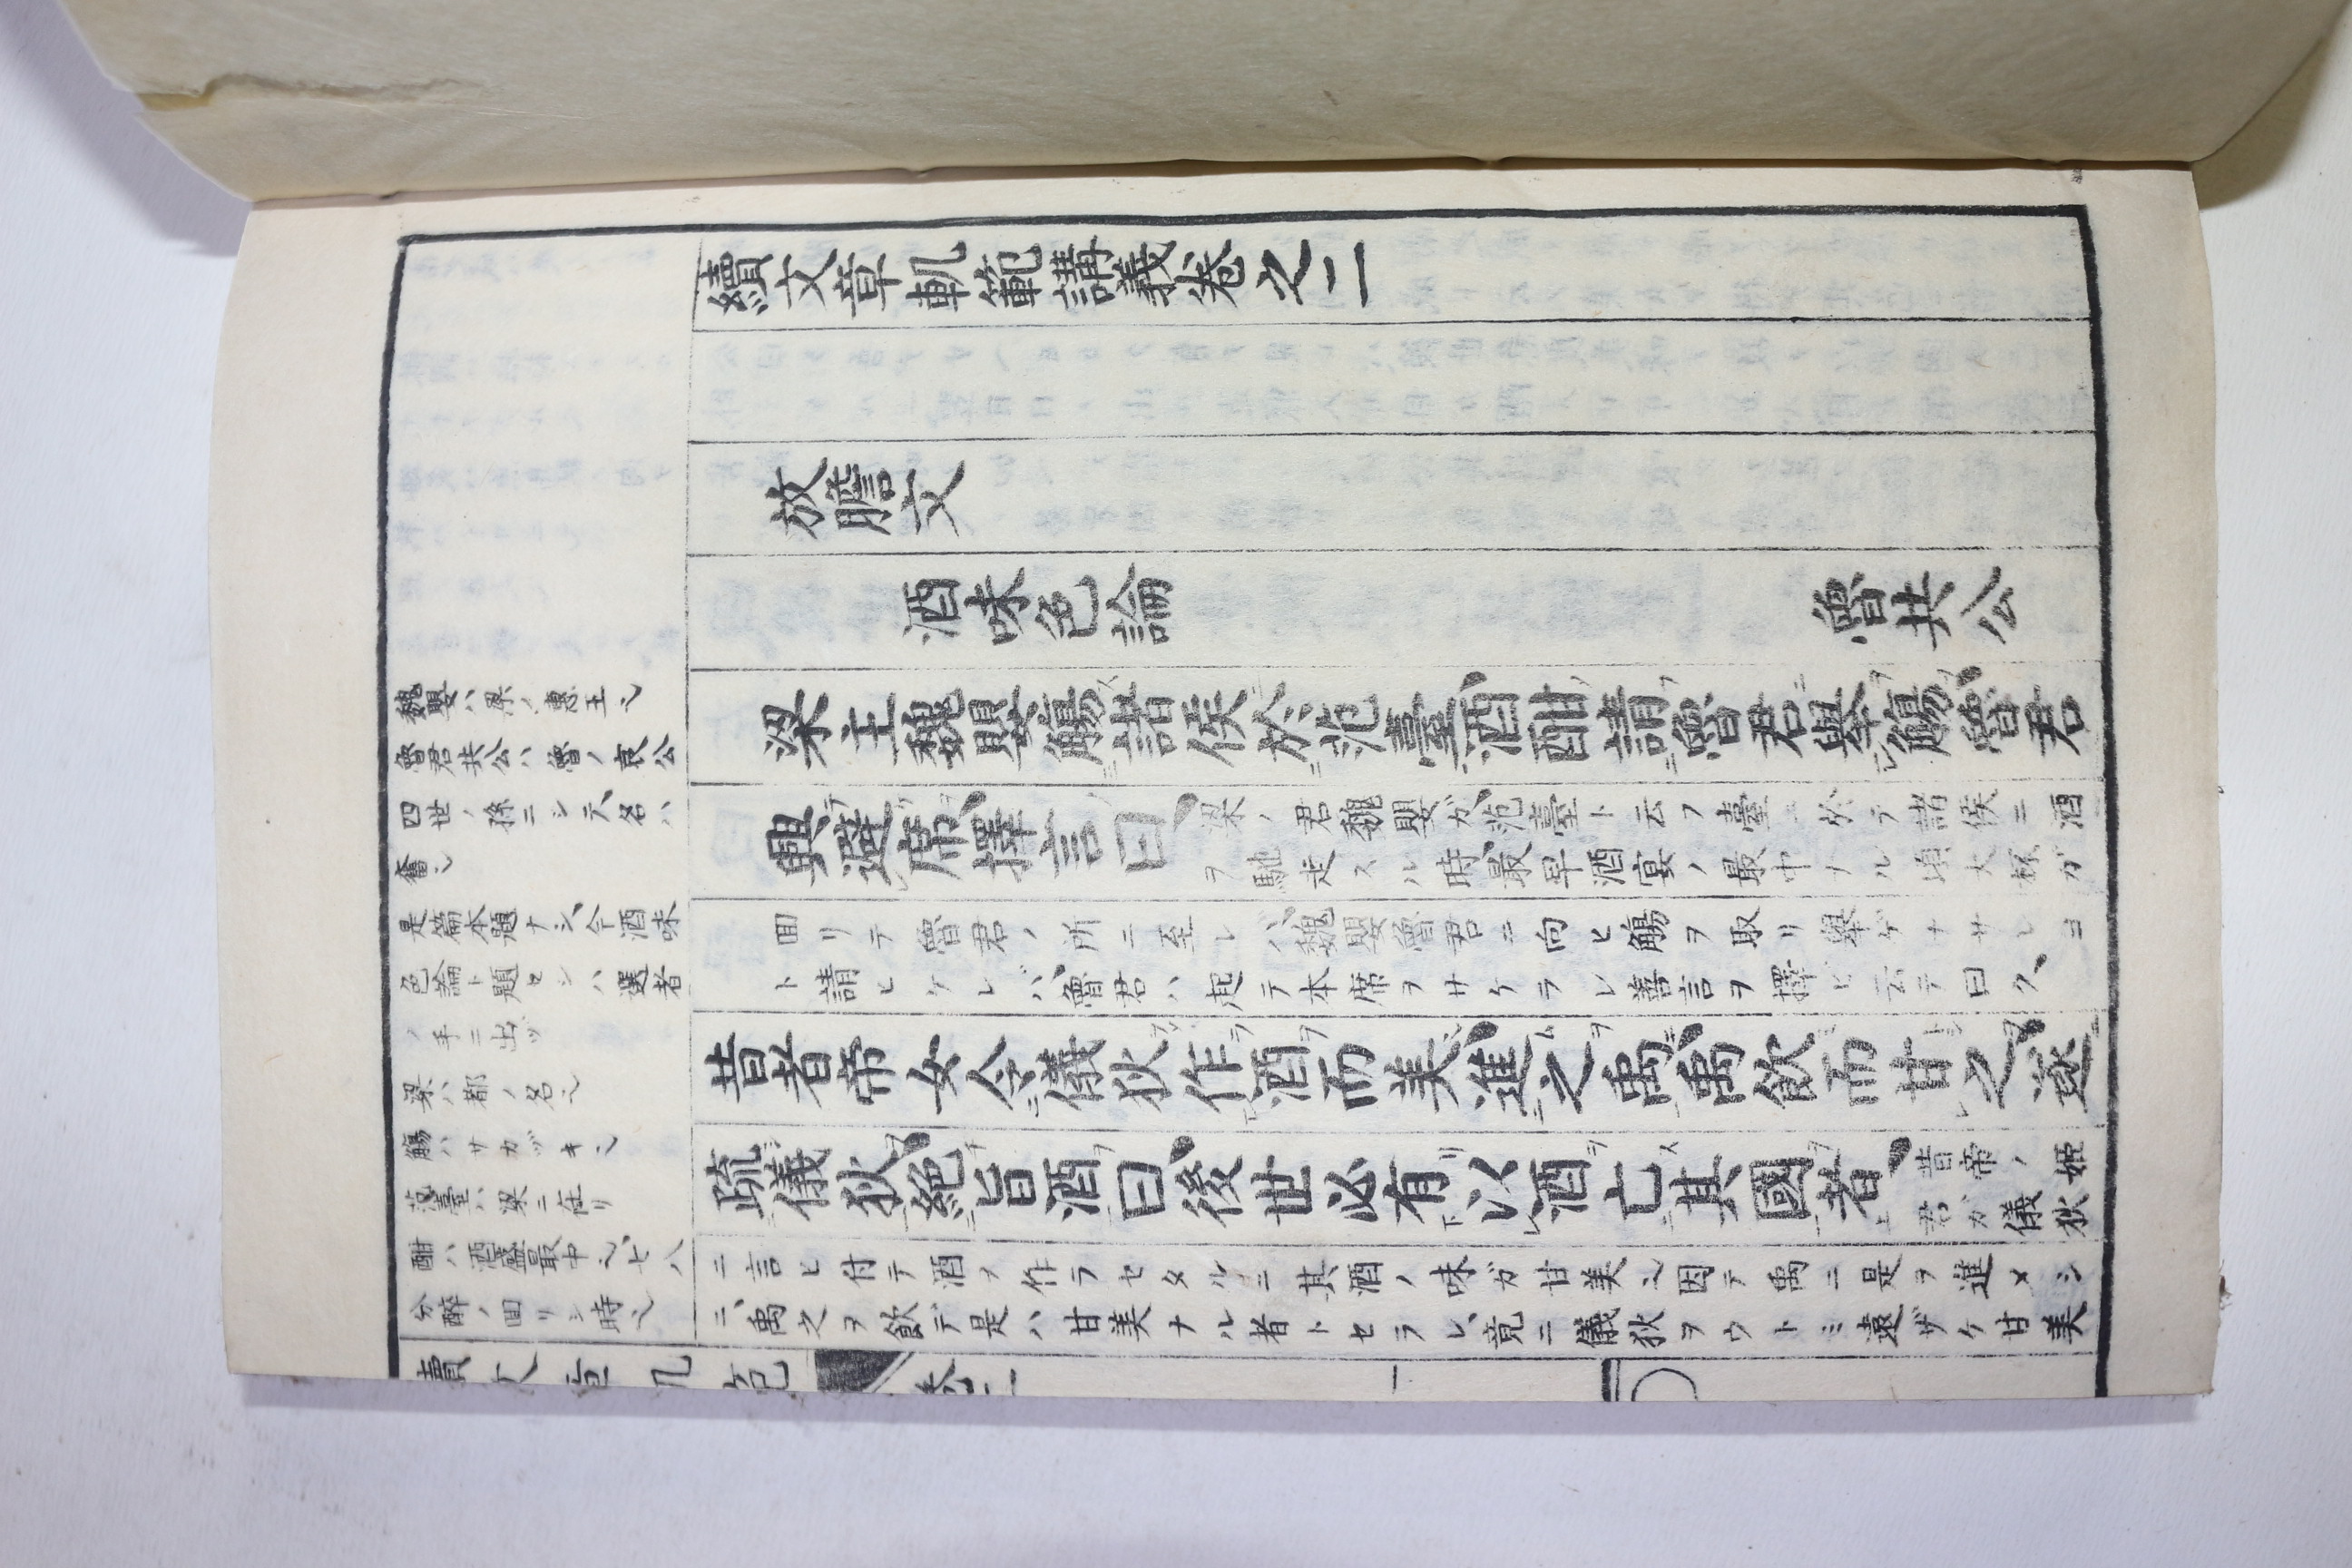 續文章軌範講義卷之二
放膽文
酒味色論　魯共公
梁主魏嬰觴諸侯於范臺酒酣請魯君舉觴魯君
興避席擇言曰、
梁ノ君魏嬰ガ、范臺ト云フ臺ニ於テ諸侯ニ酒
ヲ馳走スル時、最早酒宴ノ最中ナル頃大杯ガ
回リテ魯君ノ所ニ至レバ、魏嬰魯君ニ向ヒ觴ヲ取リ舉ゲナサレヨ
ト請ヒケレバ、魯君ハ起テ本席ヲサケラレ善言ヲ擇ビ云テ曰ク、
昔者帝女令儀狄作酒而美、進之禹、禹飲而甘之、遂
疏儀狄、絕旨酒曰、後世必有以酒亡其國者、
昔帝ノ姫
君ガ儀狄
ニ言ヒ付テ酒ヲ作ラセタルニ其酒ノ味ガ甘美ニ因テ禹ニ是ヲ進メシ
ニ、禹之ヲ飲デ是ハ甘美ナル者トセラレ、竟ニ儀狄ヲウトミ遠ザケ甘美
魏嬰ハ梁ノ惠王也
魯君共公ハ魯ノ哀公
四世ノ孫ニシテ、名ハ
奮也
是篇本題ナシ、今酒味
色論ト題セシハ選者
ノ手ニ出ヅ
梁ハ都ノ名也
觴ハサカヅキ也
范臺ハ梁ニ在リ
酣ハ酒盛最中也、七八
分醉ノ回リシ時也
續文章軌範　卷二　一